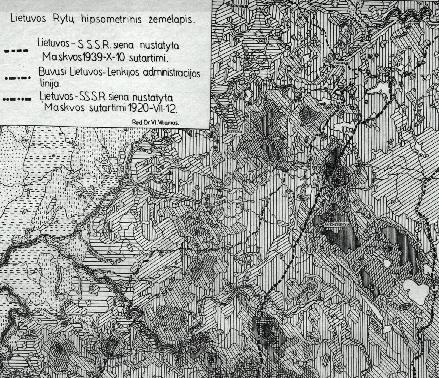 Lietuvos Rytų hipsometrinis žemėlapis.
Lietuvos-S.S.S.R. siena nustatyta
Maskvos 1939-X-10 sutartimi.
Buvusi Lietuvos-Lenkijos administracijos
linija.
Lietuvos-SSSR siena nustatyta
Maskvos sutartimi 1920-VII-12.
Red. Dr. Vl. Viliamas.